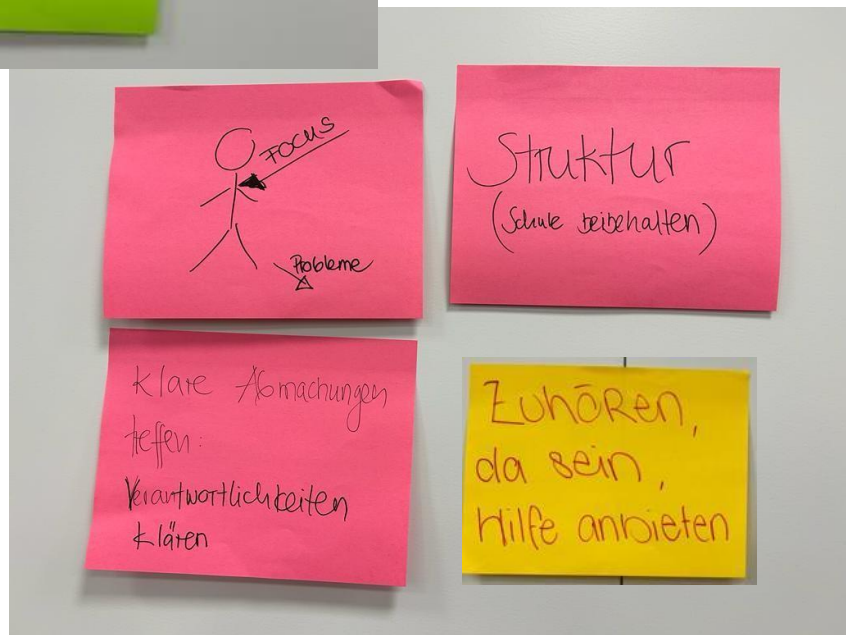 FOCUS
Probleme
Struktur
(Schule beibehalten)
Klare Abmachungen
treffen:
Verantwortlichkeiten
klären
Zuhören,
da sein,
Hilfe anbieten